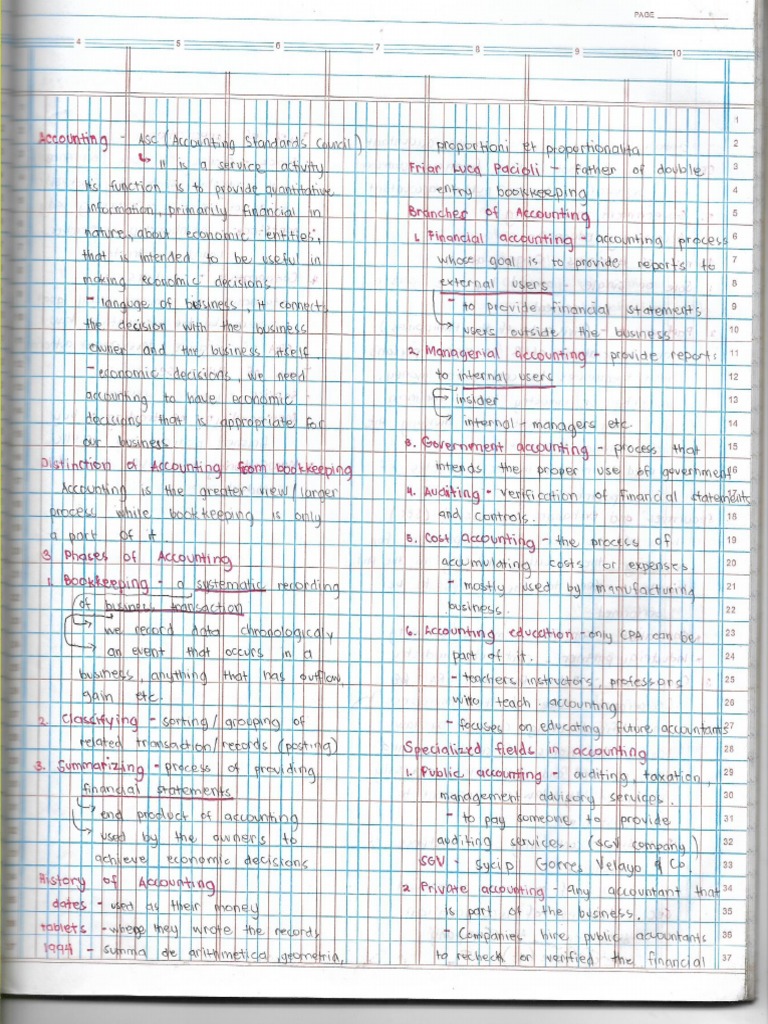 PAGE
4 5 6 7 8 9 10
Accounting - ASC (Accounting Standards Council)
↳ It is a service activity
Its function is to provide quantitative
information, primarily financial in
nature, about economic entities,
that is intended to be useful in
making economic decisions.
- language of business, it connects
the decision with the business
owner and the business itself
- economic decisions, we need
accounting to have economic
decisions that is appropriate for
our business
Distinction of Accounting from bookkeeping
Accounting is the greater view/larger
process while bookkeeping is only
a part of it.
3 Phases of Accounting
1. Bookkeeping - a systematic recording
of business transaction
→ we record data chronologicaly
→ an event that occurs in a
business, anything that has outflow,
gain etc.
2. Classifying - sorting/grouping of
related transaction/records (posting)
3. Summarizing - process of providing
financial statements
→ end product of accounting
→ used by the owners to
achieve economic decisions
History of Accounting
dates - used as their money
tablets - where they wrote the records
1994 - Summa de arithmetica, geometria,
proportioni et proportionalita
Friar Luca Pacioli - Father of double
entry bookkeeping
Branches of Accounting
1. Financial accounting - accounting process
whose goal is to provide reports to
external users
- to provide financial statements
→ users outside the business
2. Managerial accounting - provide reports
to internal users
→ insider
→ internal - managers etc.
3. Government accounting - process that
intends the proper use of government
4. Auditing - verification of financial statements
and controls.
5. Cost accounting - the process of
accumulating costs or expenses
- mostly used by manufacturing
business.
6. Accounting education - only CPA can be
part of it.
- teachers, instructors, professors
who teach accounting
- focuses on educating future accountants
Specialized fields in accounting
1. Public accounting - auditing, taxation,
management advisory services.
- to pay someone to provide
auditing services. (SGV company)
SGV - Sycip Gorres Velayo & Co.
2. Private accounting - any accountant that
is part of the business.
- Companies hire public accountants
to recheck or verified the financial
1
2
3
4
5
6
7
8
9
10
11
12
13
14
15
16
17
18
19
20
21
22
23
24
25
26
27
28
29
30
31
32
33
34
35
36
37